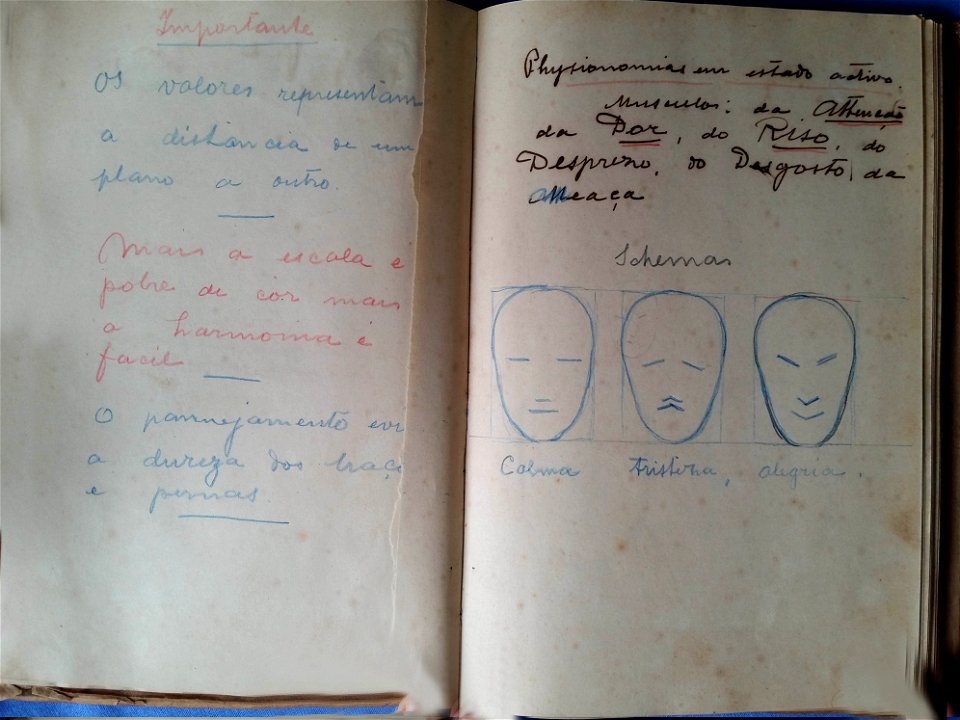 Importante
Os valores representam
a distancia de um
plano a outro.
Mais a escala é
pobre de côr mais
a harmonia é
facil
O pannejamento evi
a dureza dos braço
e pernas.
Physionomias em estado activo.
Musculos: da Attencão
da Dor, do Riso, do
Desprezo, do Desgosto, da
Ameaça
Schemas
Calma tristeza, alegria.